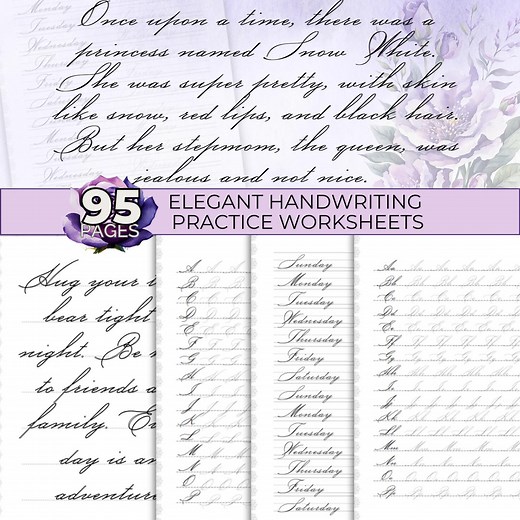 Once upon a time, there was a
princess named Snow White.
She was super pretty, with skin
like snow, red lips, and black hair.
But her stepmom, the queen, was
jealous and not nice.
95
PAGES
ELEGANT HANDWRITING
PRACTICE WORKSHEETS
Hug your
bear tight
night. Be
to friends a
family. E
day is an
adventure
A
B
C
D
E
F
G
H
I
J
K
L
M
N
O
P
Sunday
Monday
Tuesday
Wednesday
Thursday
Friday
Saturday
Sunday
Monday
Tuesday
Wednesday
Thursday
Friday
Saturday
Aa
Bb
Cc
Dd
Ee
Ff
Gg
Hh
Ii
Jj
Kk
Ll
Mm
Nn
Oo
Pp